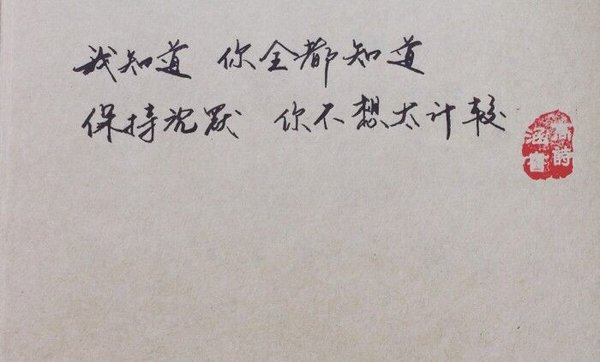 我知道 你全都知道
保持沉默 你不想太计较